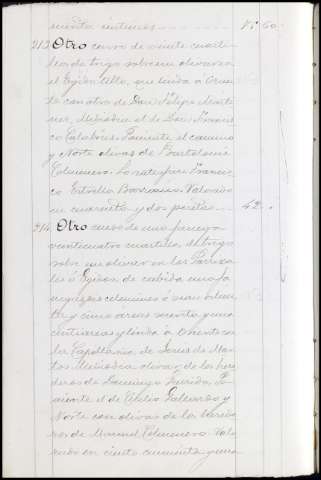 senta centimos 17. 60.
213 Otro censo de veinte cuarti-
llos de trigo sobre un olivar en
el Egido Alto, que linda á Orien-
te con otro de Don Felipe Marti-
nez, Mediodia el de Don Francis-
co Calabrús, Poniente el camino
y Norte olivas de Bartolomé
Colmenero. Lo satisface Francis-
co Estrella Barranco. Valorado
en cuarenta y dos pesetas 42.
214 Otro censo de una fanega
veinticuatro cuartillos de trigo
sobre un olivar en las Parriza-
les ó Egidos de cabida una fa-
nega seis celemines ó sean
ta y cinco áreas sesenta y una
centiareas y linda á Oriente con
la Capellania de Ginés de Man-
tos Mediodia olivar de los here-
deros de Domingo Garrido, Po-
niente el de Cecilio Gallardo y
Norte con olivas de los herede-
ros de Manuel Colmenero. Valo-
rado en ciento cuarenta y una